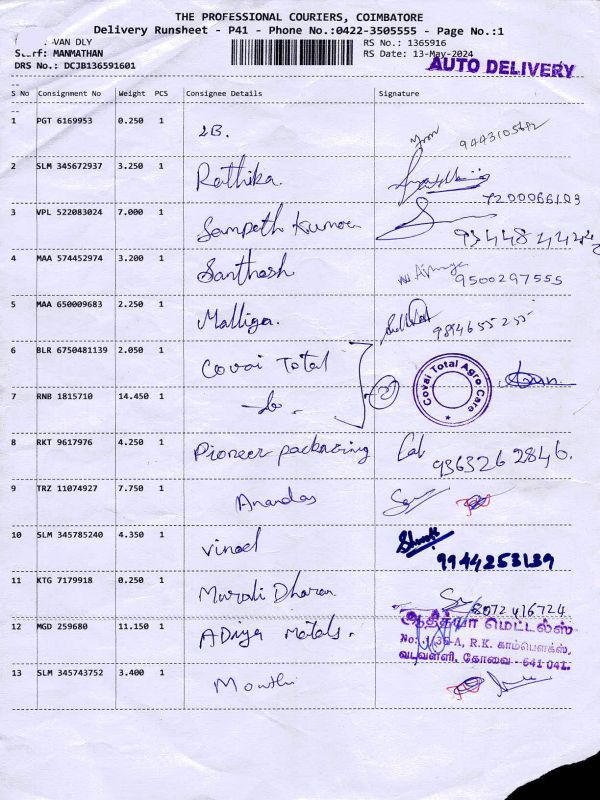 THE PROFESSIONAL COURIERS, COIMBATORE
Delivery Runsheet - P41 - Phone No.:0422-3505555 - Page No.:1
VAN DLY
RS No.: 1365916
MANMATHAN
RS Date: 13-May-2024
DRS No.: DCJB136591601
AUTO DELIVERY
S No Consignment No Weight PCS Consignee Details Signature
1 PGT 6169953 0.250 1 2B. 9443105612
2 SLM 345672937 3.250 1 Rathika. 7200066103
3 VPL 522083024 7.000 1 Sampath Kumar
4 MAA 574452974 3.200 1 Santhosh 9500297555
5 MAA 650009683 2.250 1 Malliga. 9894655255
6 BLR 6750481139 2.050 1 Covai Total
Covai Total Agro Care
7 RNB 1815710 14.450 1
8 RKT 9617976 4.250 1 Pioneer packaging 9363262846.
9 TRZ 11074927 7.750 1 Anandas
10 SLM 345785240 4.350 1 Vinod 9944253139
11 KTG 7179918 0.250 1 Murali Dharan 8072416724
12 MGD 259680 11.150 1 ADiya Metals.
ஆதித்யா மெட்டல்ஸ்
R.K. காம்பௌக்ஸ்,
வடவள்ளி, கோவை - 641 041.
13 SLM 345743752 3.400 1 Mouthi